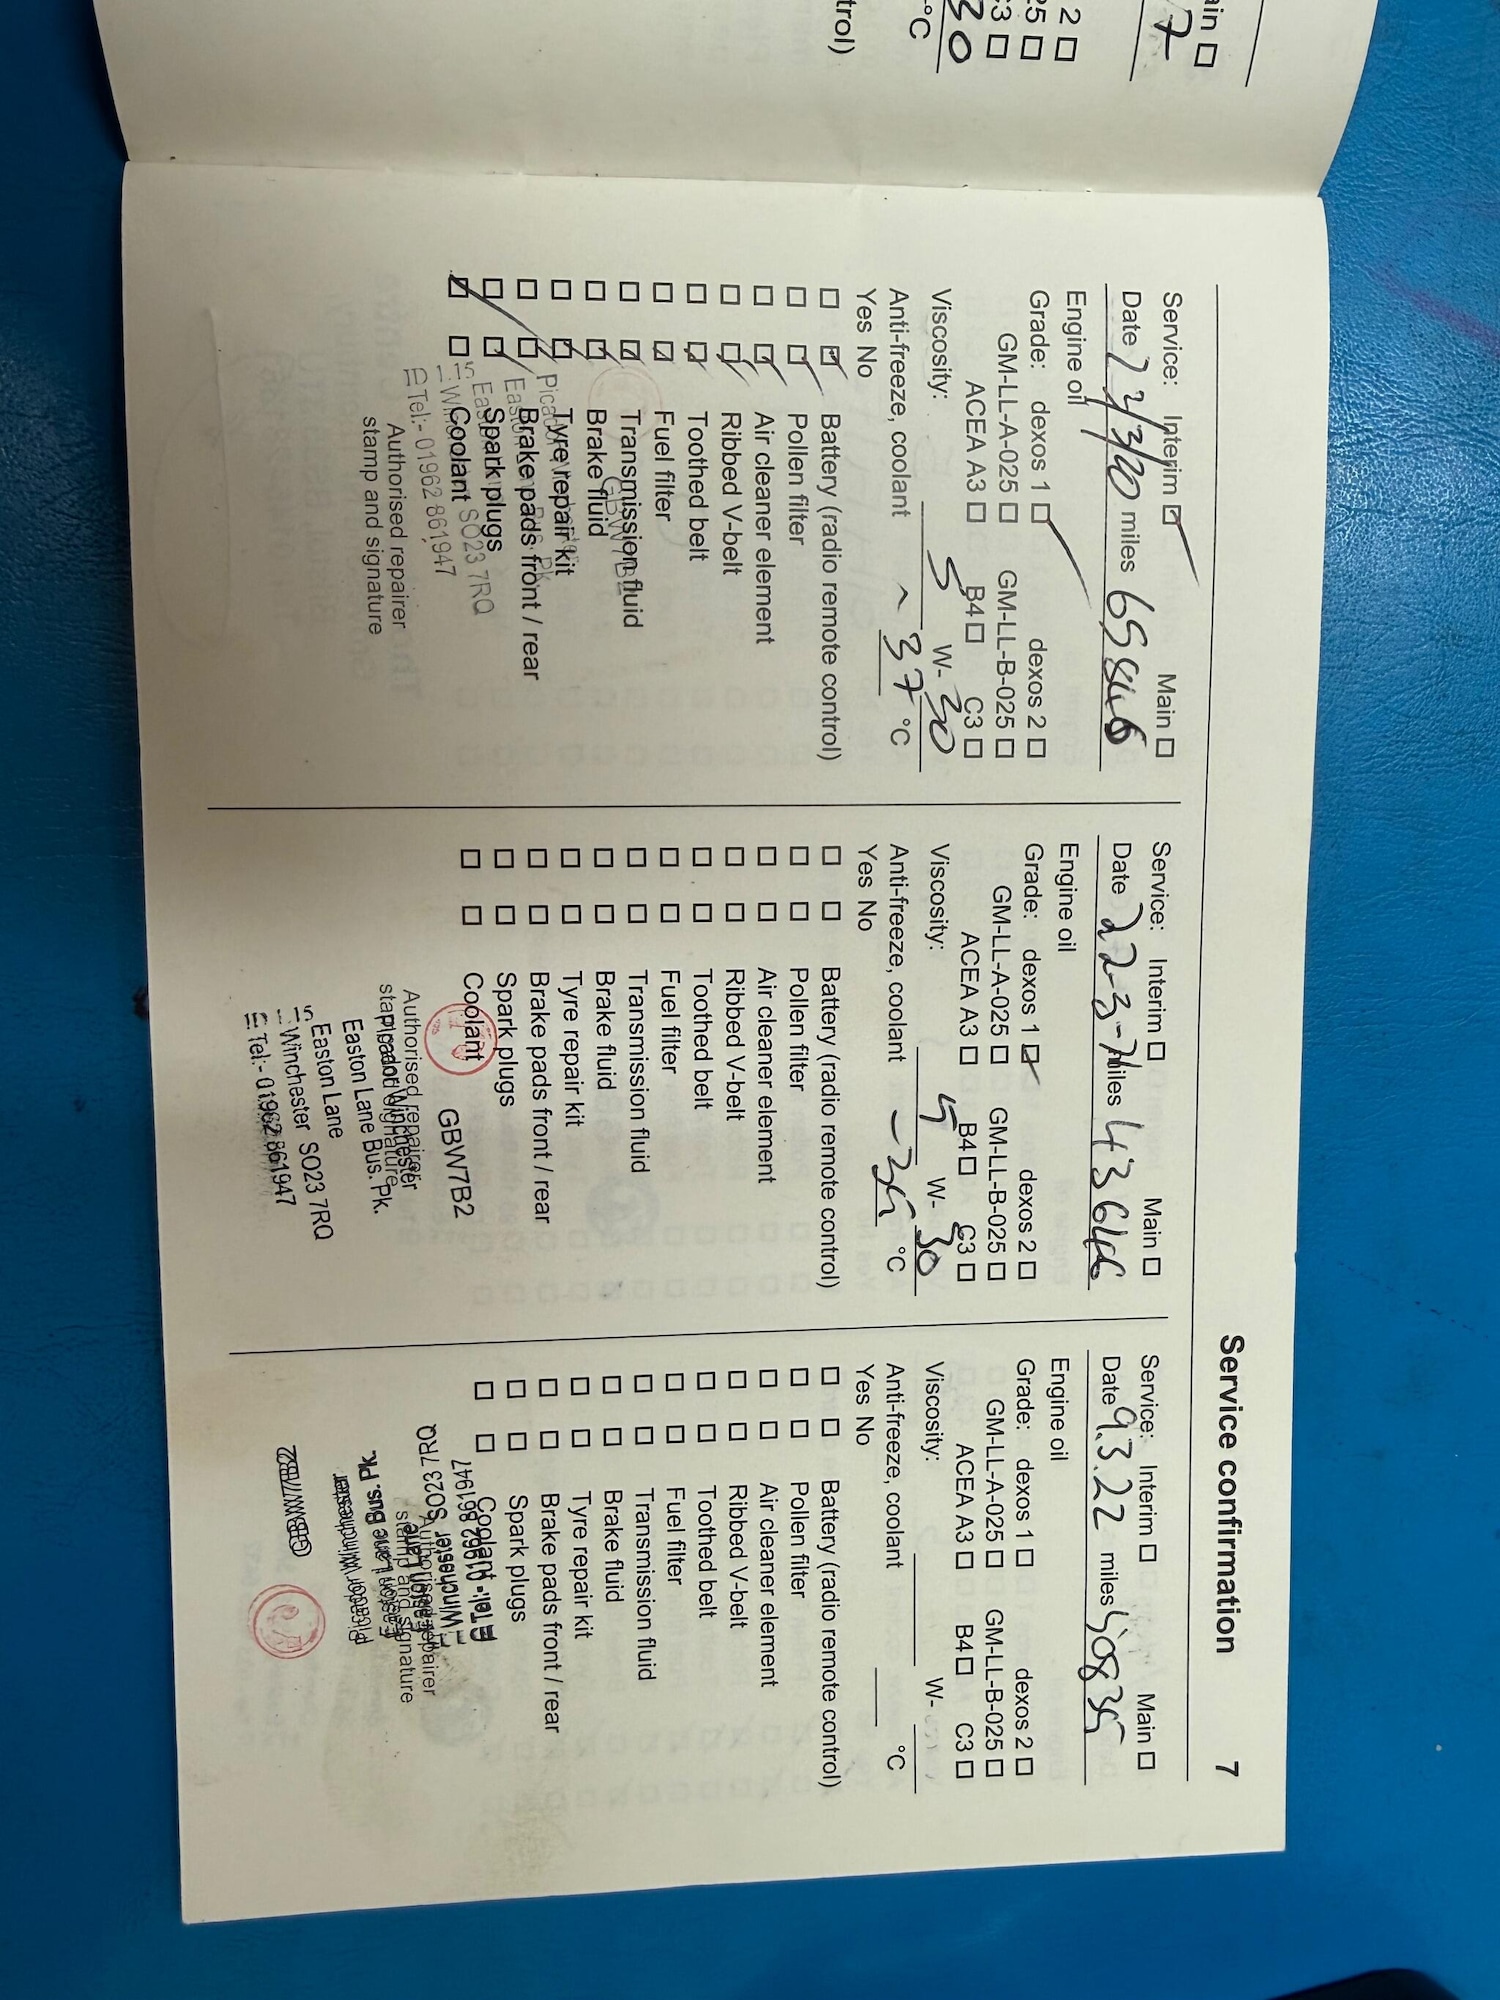 Service confirmation 7
Service: Interim ☑ Main ☐
Date 2/3/20 miles
Engine oil
Grade: dexos 1 ☑ dexos 2 ☐
GM-LL-A-025 ☐ GM-LL-B-025 ☐
ACEA A3 ☐ B4 ☐ C3 ☐
Viscosity: 5 W- 30
Anti-freeze, coolant - 37 °C
Yes No
☐ ☑ Battery (radio remote control)
☐ ☑ Pollen filter
☐ ☑ Air cleaner element
☐ ☑ Ribbed V-belt
☐ ☑ Toothed belt
☐ ☑ Fuel filter
☐ ☑ Transmission fluid
☐ ☑ Brake fluid
☐ ☑ Tyre repair kit
☐ ☑ Brake pads front / rear
☐ ☑ Spark plugs
☑ ☐ Coolant
SO23 7RQ
Tel:- 01962 861947
Authorised repairer
stamp and signature
Service: Interim ☐ Main ☐
Date 22-3-21 miles 43646
Engine oil
Grade: dexos 1 ☑ dexos 2 ☐
GM-LL-A-025 ☐ GM-LL-B-025 ☐
ACEA A3 ☐ B4 ☐ C3 ☐
Viscosity: 5 W- 30
Anti-freeze, coolant -35 °C
Yes No
☐ ☐ Battery (radio remote control)
☐ ☐ Pollen filter
☐ ☐ Air cleaner element
☐ ☐ Ribbed V-belt
☐ ☐ Toothed belt
☐ ☐ Fuel filter
☐ ☐ Transmission fluid
☐ ☐ Brake fluid
☐ ☐ Tyre repair kit
☐ ☐ Brake pads front / rear
☐ ☐ Spark plugs
☐ ☐ Coolant
GBW7B2
Authorised repairer
stamp and signature
Picador Winchester
Easton Lane Bus. Pk.
Easton Lane
Winchester SO23 7RQ
Tel:- 01962 861947
Service: Interim ☐ Main ☐
Date 9.3.22 miles 50835
Engine oil
Grade: dexos 1 ☐ dexos 2 ☐
GM-LL-A-025 ☐ GM-LL-B-025 ☐
ACEA A3 ☐ B4 ☐ C3 ☐
Viscosity: W-
Anti-freeze, coolant °C
Yes No
☐ ☐ Battery (radio remote control)
☐ ☐ Pollen filter
☐ ☐ Air cleaner element
☐ ☐ Ribbed V-belt
☐ ☐ Toothed belt
☐ ☐ Fuel filter
☐ ☐ Transmission fluid
☐ ☐ Brake fluid
☐ ☐ Tyre repair kit
☐ ☐ Brake pads front / rear
☐ ☐ Spark plugs
☐ ☐ Coolant
Authorised repairer
stamp and signature
GBW7B2
Picador Winchester
Easton Lane Bus. Pk.
Easton Lane
Winchester SO23 7RQ
Tel:- 01962 861947